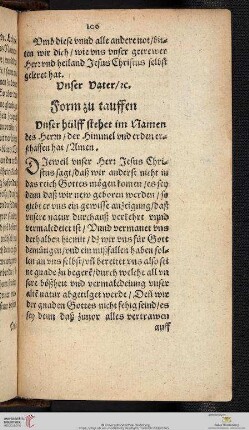 106
Vmb diese vnnd alle andere not/bit-
ten wir dich/wie vns vnser getrewer
Herr vnd heiland Jesus Christus selbst
geleret hat.
Vnser Vater/ꝛc.
Form zu tauffen
Vnser hülff stehet im Namen
des Herrn/der Himmel vnd erden er-
schaffen hat/Amen.
DJeweil vnser Herr Jesus Chri-
stus sagt/daß wir anderst nicht in
das reich Gottes mögen komen/es sey
dann daß wir new geboren werden/so
gibt er vns ein gewisse anzeigung/daß
vnsere natur durchauß verkehrt vnnd
vermaledeiet ist/Vnnd vermanet vns
derhalben hiemit/dz wir vns für Gott
demütigen/vnd ein mißfallen haben sol-
len an vns selbst/vñ bereitet vns also sei-
ne gnade zu begerē/durch welche all vn-
sere boßheit vnd vermaledeiung vnser
altē natur abgetilget werde/Deñ wir
der gnaden Gottes nicht fehig seind/es
sey denn daß zuuor alles vertrawen
auff